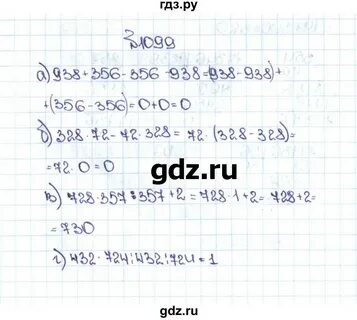 гдз.ру
№1099
а) 938+356-356-938=(938-938)+
+(356-356)=0+0=0
б) 328·72-72·328=72·(328-328)=
=72·0=0
gdz.ru
в) 728·357:357+2=728·1+2=728+2=
=730
г) 432·724:432:724=1
gdz.ru